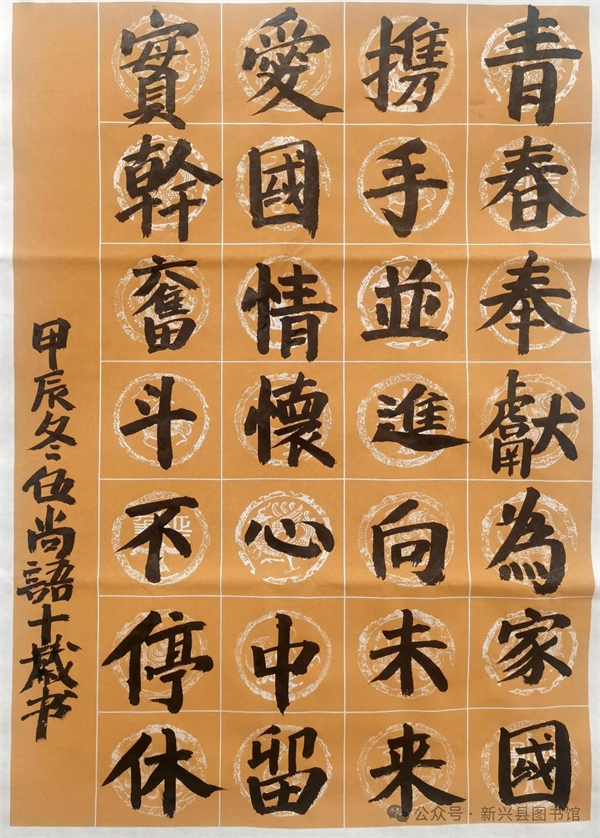 青春奉獻為家國
携手並進向未来
愛國情懷心中留
實幹奮斗不停休
甲辰冬伍尚語十歲书
公众号·新兴县图书馆